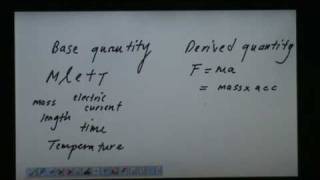 Base quantity
MlettT
mass electric
current
length
time
Temperature
Derived quantity
F = ma
= mass x acc